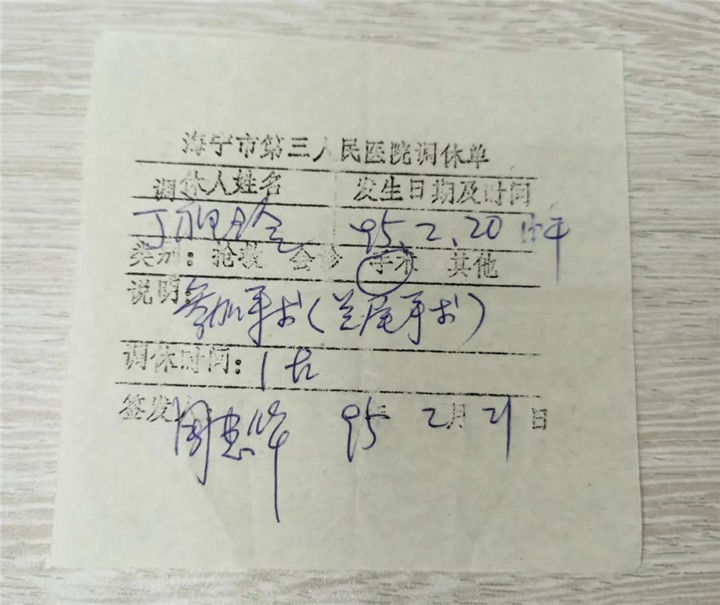 海宁市第三人民医院调休单
调休人姓名 发生日期及时间
丁 95.2.20 中午
类别：抢救 会诊 手术 其他
说明：参加手术(兰尾手术)
调休时间：1
签发 周忠华 95年2月21日